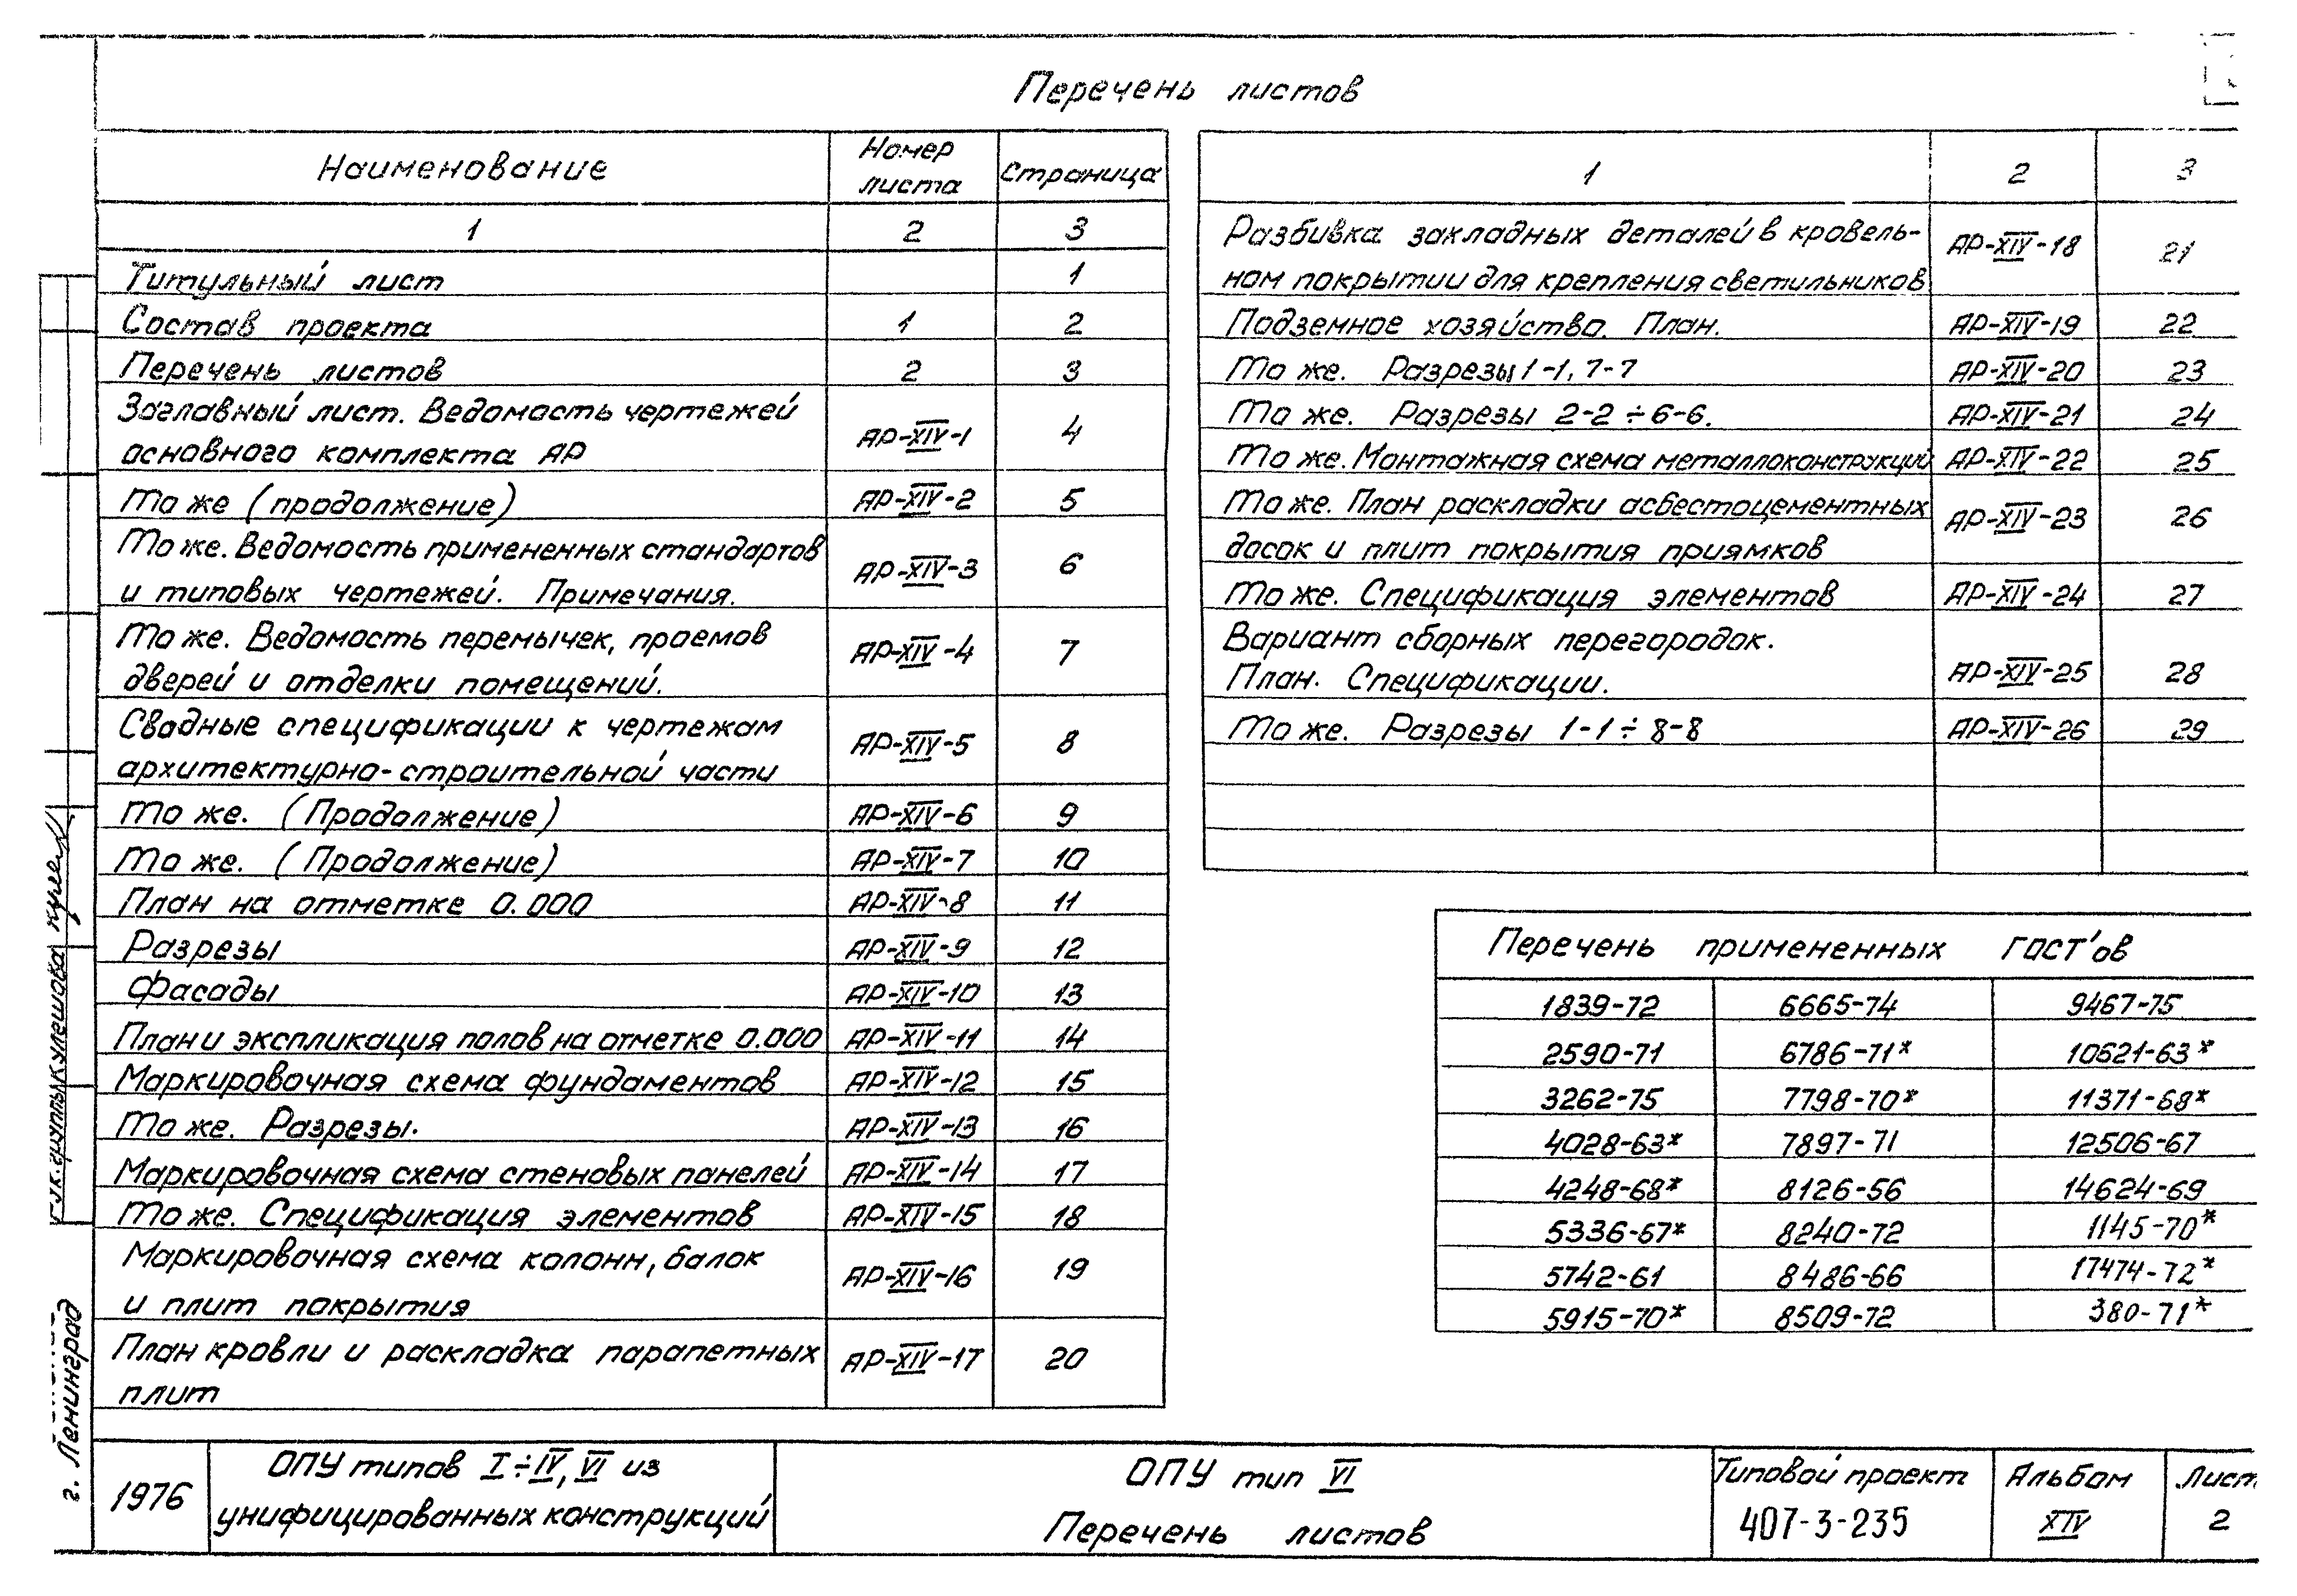 Перечень листов
Наименование
Номер
листа
Страница
1 2 3
Титульный лист 1
Состав проекта 1 2
Перечень листов 2 3
Заглавный лист. Ведомость чертежей
основного комплекта АР
АР-XIV-1 4
То же (продолжение) АР-XIV-2 5
То же. Ведомость примененных стандартов
и типовых чертежей. Примечания.
АР-XIV-3 6
То же. Ведомость перемычек, проемов
дверей и отделки помещений.
АР-XIV-4 7
Сводные спецификации к чертежам
архитектурно-строительной части
АР-XIV-5 8
То же. (Продолжение) АР-XIV-6 9
То же. (Продолжение) АР-XIV-7 10
План на отметке 0.000 АР-XIV-8 11
Разрезы АР-XIV-9 12
Фасады АР-XIV-10 13
План и экспликация полов на отметке 0.000 АР-XIV-11 14
Маркировочная схема фундаментов АР-XIV-12 15
То же. Разрезы. АР-XIV-13 16
Маркировочная схема стеновых панелей АР-XIV-14 17
То же. Спецификация элементов АР-XIV-15 18
Маркировочная схема колонн, балок
и плит покрытия
АР-XIV-16 19
План кровли и раскладка парапетных
плит
АР-XIV-17 20
1 2 3
Разбивка закладных деталей в кровель-
ном покрытии для крепления светильников
АР-XIV-18 21
Подземное хозяйство. План. АР-XIV-19 22
То же. Разрезы 1-1, 7-7 АР-XIV-20 23
То же. Разрезы 2-2 ÷ 6-6. АР-XIV-21 24
То же. Монтажная схема металлоконструкций АР-XIV-22 25
То же. План раскладки асбестоцементных
досок и плит покрытия приямков
АР-XIV-23 26
То же. Спецификация элементов АР-XIV-24 27
Вариант сборных перегородок.
План. Спецификации.
АР-XIV-25 28
То же. Разрезы 1-1 ÷ 8-8 АР-XIV-26 29
Перечень примененных ГОСТ'ов
1839-72 6665-74 9467-75
2590-71 6786-71* 10621-63*
3262-75 7798-70* 11371-68*
4028-63* 7897-71 12506-67
4248-68* 8126-56 14624-69
5336-67* 8240-72 1145-70*
5742-61 8486-66 17474-72*
5915-70* 8509-72 380-71*
группы Кулешова
г. Ленинград
1976
ОПУ типов I÷IV, VI из
унифицированных конструкций
ОПУ тип VI
Перечень листов
Типовой проект
407-3-235
Альбом
XIV
Лист
2